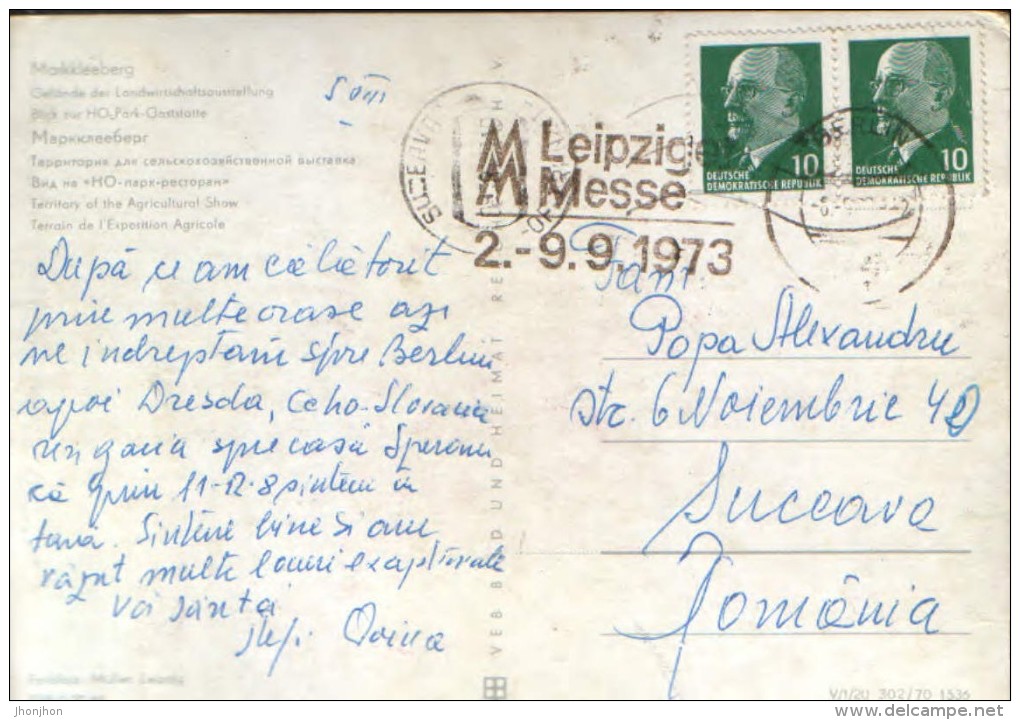 Markkleeberg
Gelände der Landwirtschaftsausstellung
Blick zur HO-Park-Gaststätte
Маркклееберг
Территория для сельскохозяйственной выставка
Вид на «НО-парк-ресторан»
Territory of the Agricultural Show
Terrain de l'Exposition Agricole
5 VIII
După ce am călătorit
prin multe orașe azi
ne îndreptăm spre Berlin
apoi Dresda, Ceho-Slovacia
Ungaria spre casă Sperăm
că prin 11-12.8 sîntem în
țară. Sîntem bine Si am
văzut multe locuri
Vă sărută
Doina
VEB BILD UND HEIMAT REICHENBACH V
SUCEAVA
MM Leipziger
Messe
2.-9.9.1973
BERLIN
10
DEUTSCHE
DEMOKRATISCHE REPUBLIK
10
DEUTSCHE
DEMOKRATISCHE REPUBLIK
Fam.
Popa Alexandru
str. 6 Noiembrie
Suceava
România
Müller, Leipzig
V/1/20 302/70 1536
jhonjhon
www.delcampe.net